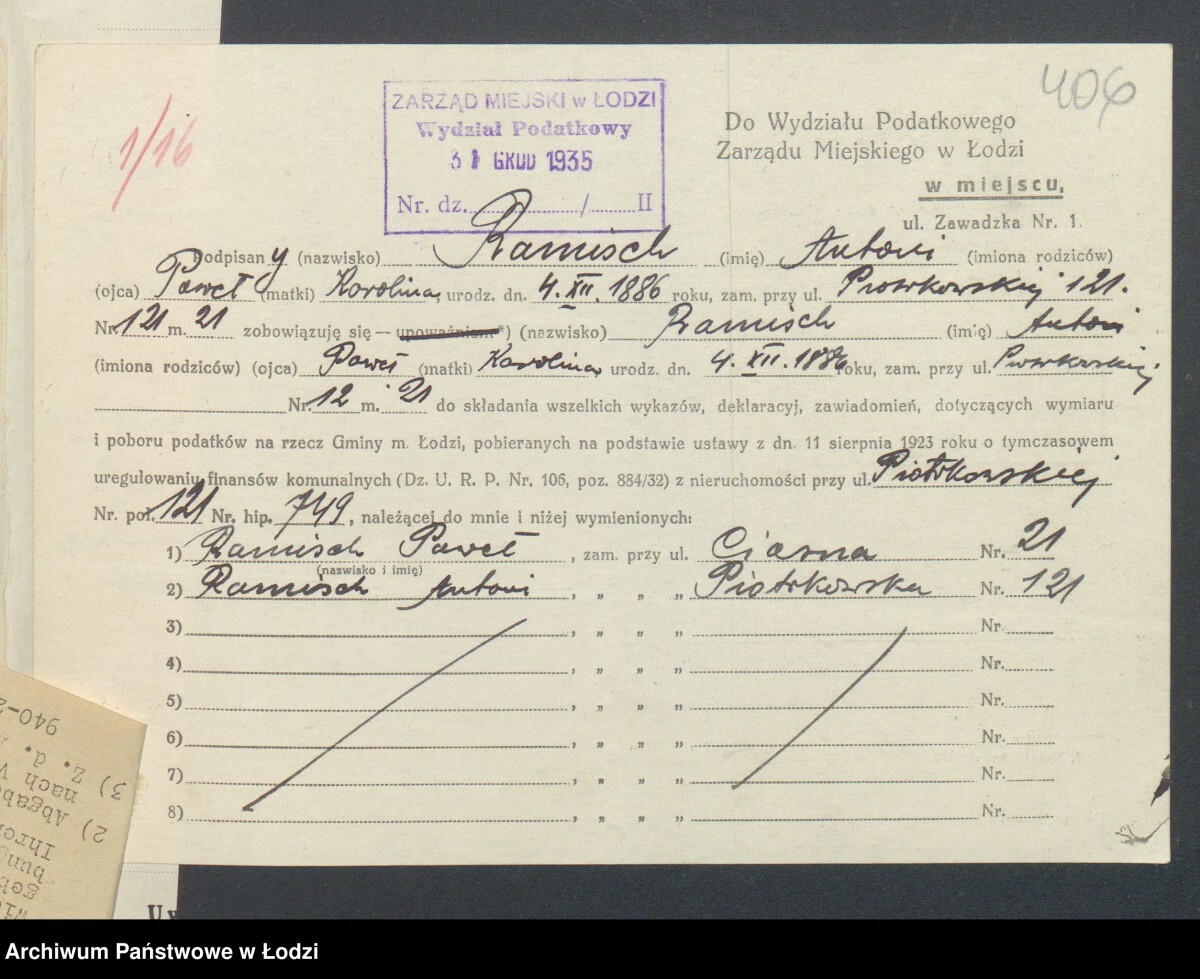 406
1/16
ZARZĄD MIEJSKI w ŁODZI
Wydział Podatkowy
31 GRUD 1935
Nr. dz. / II
Do Wydziału Podatkowego
Zarządu Miejskiego w Łodzi
w miejscu,
ul. Zawadzka Nr. 1.
Podpisany (nazwisko) Ramisch (imię) Antoni (imiona rodziców)
(ojca) Paweł (matki) Karolina urodz. dn. 4.XII.1886 roku, zam. przy ul. Piotrkowskiej 121.
Nr. 121 m. 21 zobowiązuję się — upoważniam*) (nazwisko) Ramisch (imię) Antoni
(imiona rodziców) (ojca) Paweł (matki) Karolina urodz. dn. 4.XII.1886 roku, zam. przy ul. Piotrkowskiej
Nr. 12 m. 21 do składania wszelkich wykazów, deklaracyj, zawiadomień, dotyczących wymiaru
i poboru podatków na rzecz Gminy m. Łodzi, pobieranych na podstawie ustawy z dn. 11 sierpnia 1923 roku o tymczasowem
uregulowaniu finansów komunalnych (Dz. U. R. P. Nr. 106, poz. 884/32) z nieruchomości przy ul. Piotrkowskiej
Nr. pol. 121 Nr. hip. 749, należącej do mnie i niżej wymienionych:
1) Ramisch Paweł, zam. przy ul. Ciasna Nr. 21
(nazwisko i imię)
2) Ramisch Antoni, „ „ „ Piotrkowska Nr. 121
3) , „ „ „ Nr.
4) , „ „ „ Nr.
5) , „ „ „ Nr.
6) , „ „ „ Nr.
7) , „ „ „ Nr.
8) , „ „ „ Nr.
940-2
3) z. d.
nach
2) Abgab
Ihre
bung
geb
Archiwum Państwowe w Łodzi